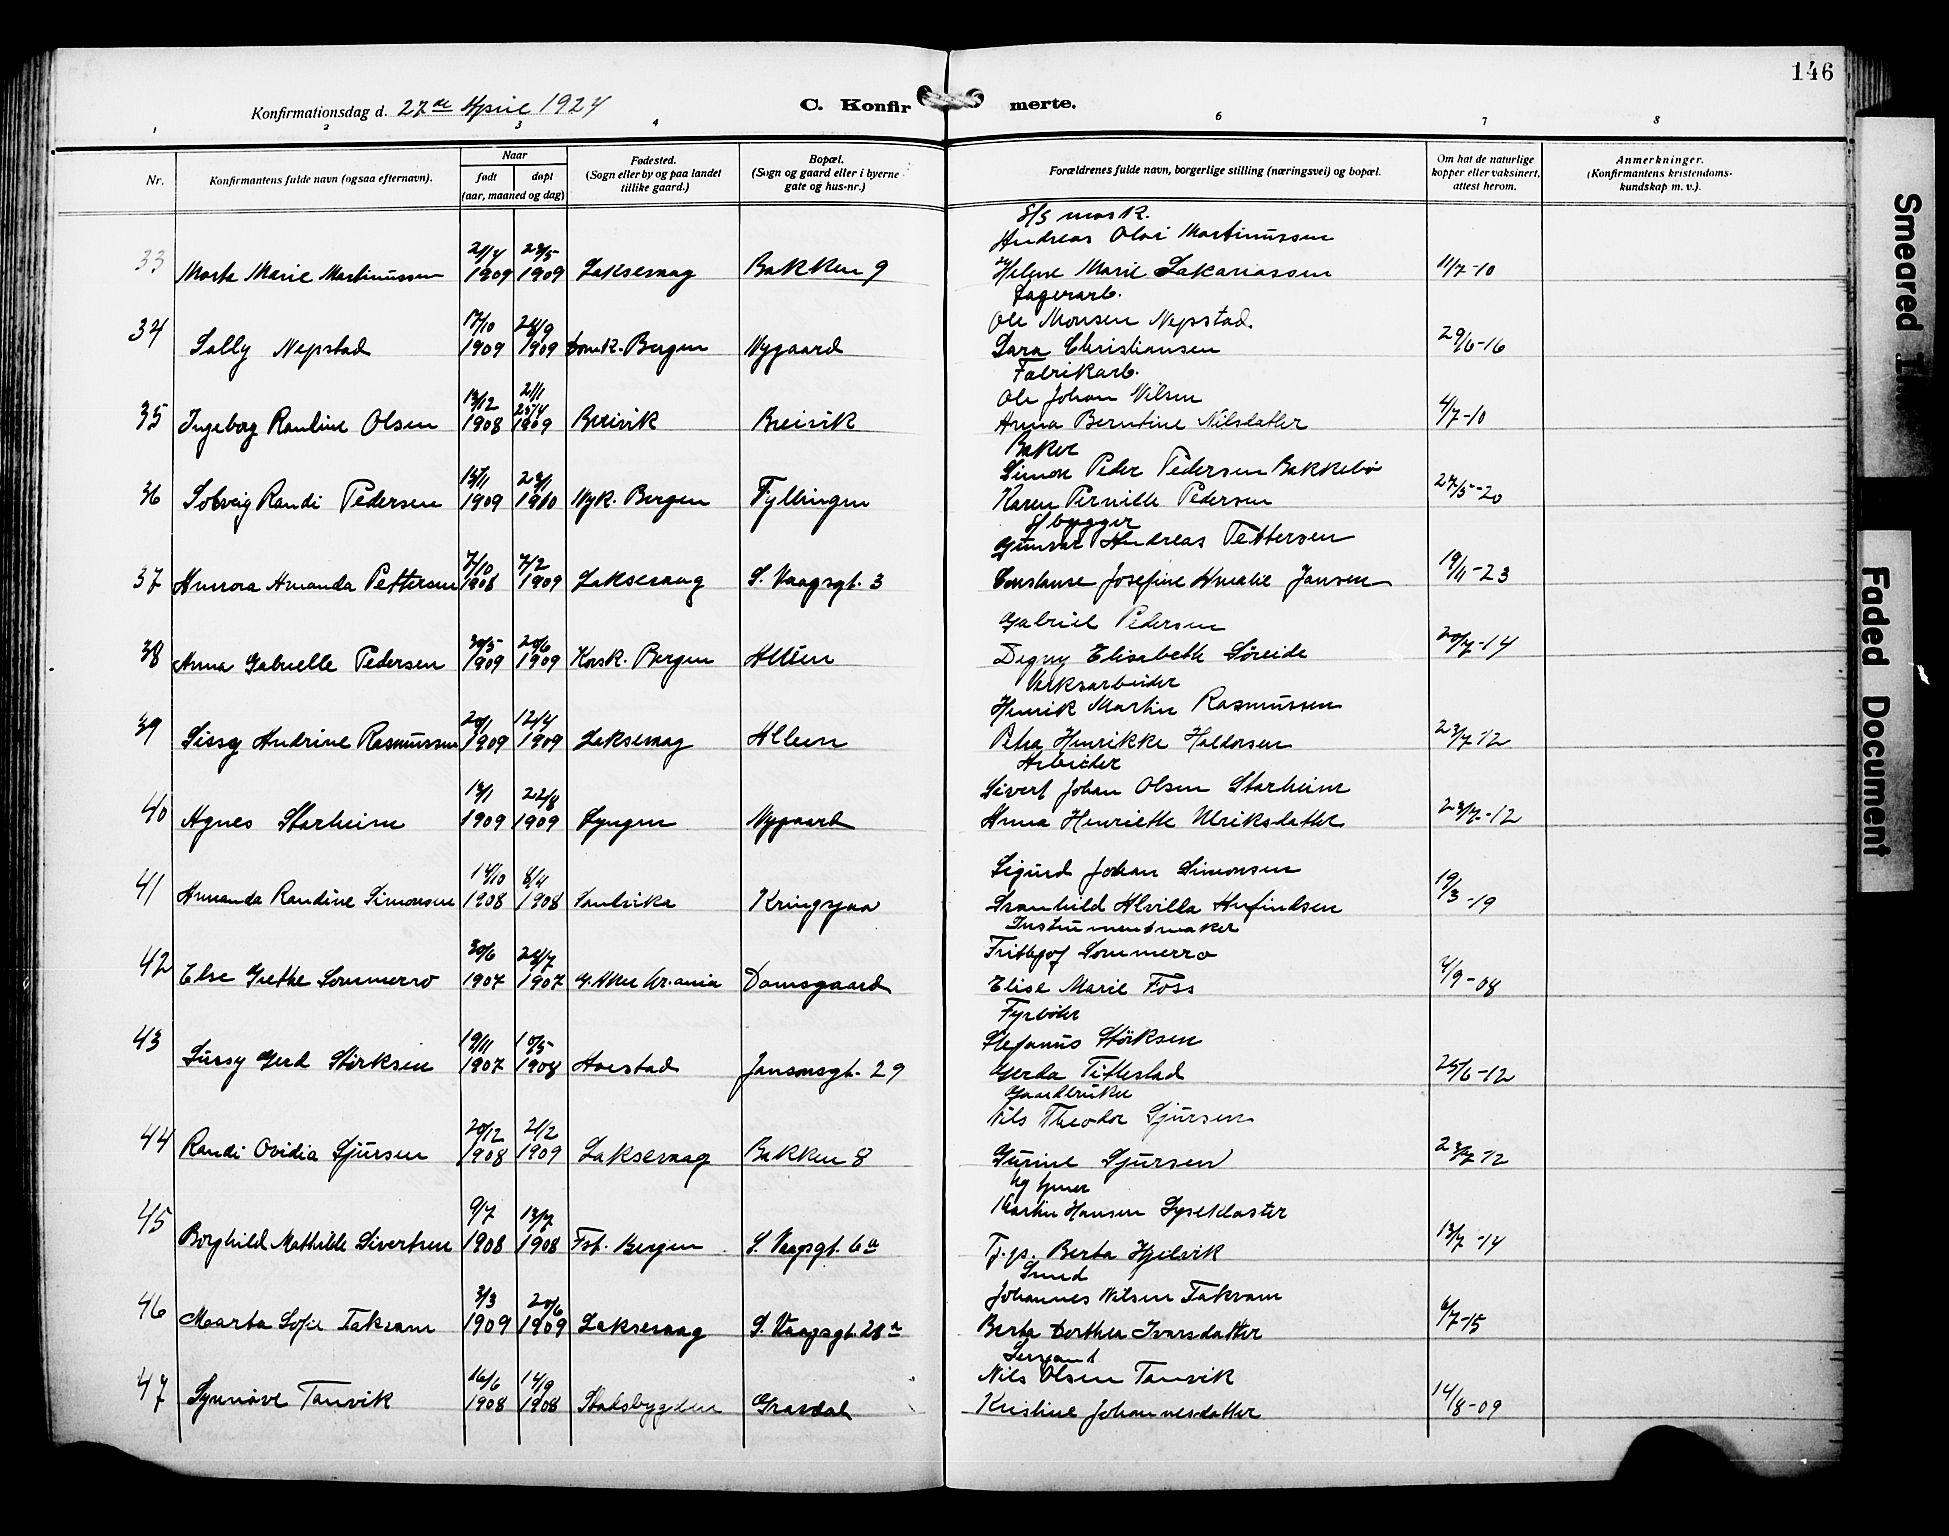 146
Konfirmationsdag d. 27de April 1924
C. Konfirmerte.
1 2 3 4 6 7 8
Nr.
Konfirmantens fulde navn (ogsaa efternavn).
Naar
født døpt
(aar, maaned og dag)
Fødested.
(Sogn eller by og paa landet
tillike gaard.)
Bopæl.
(Sogn og gaard eller i byerne
gate og hus-nr.)
Forældrenes fulde navn, borgerlige stilling (næringsvei) og bopæl.
Om hat de naturlige
kopper eller vaksinert,
attest herom.
Anmerkninger.
(Konfirmantens kristendoms-
kundskap m. v.).
S/S mask.
Andreas Olai Martinussen
33 Marta Marie Martinussen 21/4 1909 29/5 1909 Laksevaag Bakken 9 Helene Marie Sakariassen 11/7-10
Lagerarb.
Ole Monsen Nepstad.
34 Sally Nepstad 17/10 1909 28/9 1909 Domk. Bergen Nygaard Sara Christiansen 29/6-16
Fabrikarb.
Ole Johan Nilsen
35 Ingeborg Rantine Olsen 13/12 1908 21/1 25/4 1909 Breivik Breivik Anna Berntine Nilsdatter 4/7-10
Baker
Simon Peder Pedersen Bakkebø
36 Solveig Randi Pedersen 15/11 1909 23/1 1910 Nyk. Bergen Fyllingen Karen Pernille Pedersen 27/5-20
S/bygger
Gunvar Andreas Pettersen
37 Aurora Amanda Pettersen 7/10 1908 7/2 1909 Laksevaag S. Vaagsgt. 3 Constanse Josefine Amalie Jansen 19/11-23
Gabriel Pedersen
38 Anna Gabrielle Pedersen 30/5 1909 20/6 1909 Korsk. Bergen Alléen Dagny Elisabeth Søreide 20/7-14
Verksarbeider
Henrik Martin Rasmussen
39 Sissy Andrine Rasmussen 20/1 1909 12/4 1909 Laksevaag Alleen Petra Henrikke Haldorsen 23/7 12
Arbeider
Sivert Johan Olsen Starheim
40 Agnes Starheim 13/1 1909 22/8 1909 Lyngen Nygaard Anna Henriette Ulriksdatter 23/7-12
Sigurd Johan Simonsen
41 Amanda Randine Simonsen 14/10 1908 8/11 1908 Sandvika Kringsjaa Svanhild Alvilda Arfindsen 19/3-19
Instrumentmaker
Frithjof Sommerro
42 Else Grethe Sommerro 30/6 1907 28/7 1907 G. Aker Kr.ania Damsgaard Elise Marie Foss 4/9-08
Fyrbøter
Stefanus Størksen
43 Sussy Gerd Størksen 19/11 1907 10/5 1908 Harstad Jansonsgt. 29 Gerda Tittestad 25/6-12
Gaardbruker
Nils Theodor Sjursen
44 Randi Ovidia Sjursen 20/12 1908 21/2 1909 Laksevaag Bakken 8 Gurine Sjursen 23/7 12
Martin Hansen Lyseklaster
45 Borghild Mathilde Sivertsen 9/7 1908 13/7 1908 Fst. Bergen S. Vaagsgt. 6a Tj.p. Berta Hjelvik 13/7-14
Smed
Johannes Nilsen Takvam
46 Marta Sofie Takvam 3/3 1909 20/6 1909 Laksevaag S. Vaagsgt. 28a Berta Dorthea Ivarsdatter 6/7-15
Sersjant
Nils Olsen Tanvik
47 Synnøve Tanvik 16/6 1908 14/9 1908 Stadsbygden Gravdal Kristine Johannesdatter 14/8-09
Smeared
Faded Document